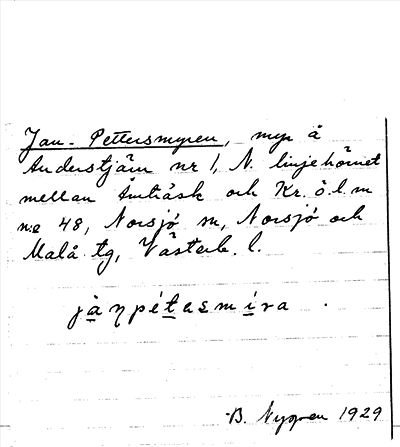 Jan-Pettersmyren, myr å
Anderstjärn nr 1, N. linjehörnet
mellan Småträsk och Kr. ö.l.m
n:o 48, Norsjö sn, Norsjö och
Malå tg, Västerb. l.
jàɳpét̲as̲mi̲ra .
B. Nygren 1929